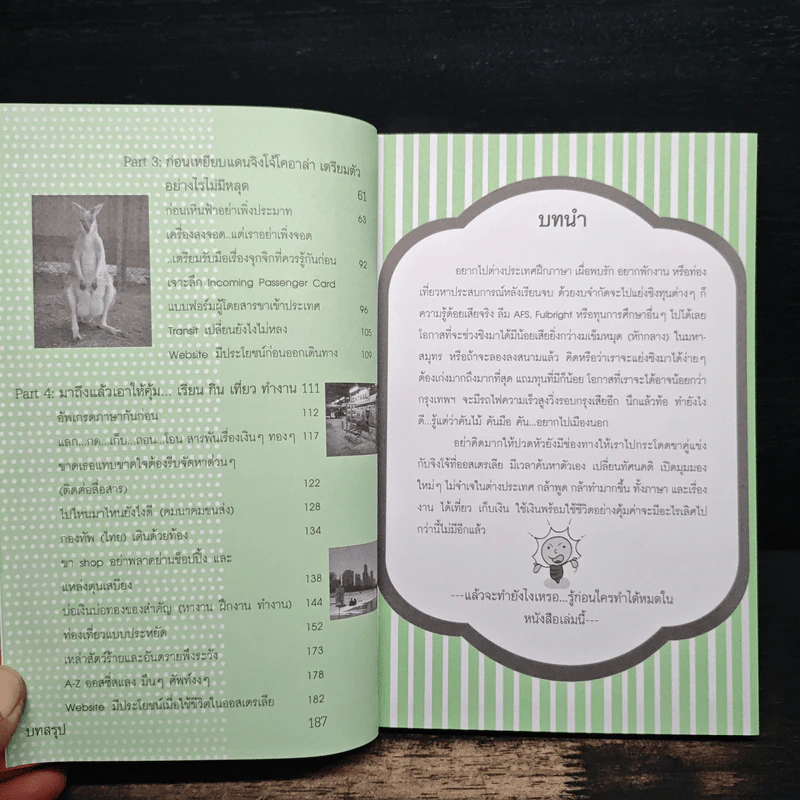 Part 3: ก่อนเหยียบแดนจิงโจ้โคอาล่า เตรียมตัว
อย่างไรไม่มีหลุด 61
ก่อนเหินฟ้าอย่าเพิ่งประมาท 63
เครื่องลงจอด...แต่เราอย่าเพิ่งจอด
..เตรียมรับมือเรื่องจุกจิกที่ควรรู้กันก่อน 92
เจาะลึก Incoming Passenger Card
แบบฟอร์มผู้โดยสารขาเข้าประเทศ 96
Transit เปลี่ยนยังไงไม่หลง 105
Website มีประโยชน์ก่อนออกเดินทาง 109
Part 4: มาถึงแล้วเอาให้คุ้ม... เรียน กิน เที่ยว ทำงาน 111
อัพเกรดภาษากันก่อน 112
แลก...กด...เก็บ...ถอน...โอน สารพันเรื่องเงินๆ ทองๆ 117
ขาดเธอแทบขาดใจต้องรีบจัดหาด่วนๆ
(ติดต่อสื่อสาร) 122
ไปไหนมาไหนยังไงดี (คมนาคมขนส่ง) 128
กองทัพ (ไทย) เดินด้วยท้อง 134
ขา shop อย่าพลาดย่านช็อปปิ้ง และ
แหล่งตุนเสบียง 138
บ่อเงินบ่อทองของสำคัญ (หางาน ฝึกงาน ทำงาน) 144
ท่องเที่ยวแบบประหยัด 152
เหล่าสัตว์ร้ายและอันตรายพึงระวัง 173
A-Z ออสซี่สแลง มึนๆ ศัพท์งงๆ 178
Website มีประโยชน์เมื่อใช้ชีวิตในออสเตรเลีย 182
บทสรุป 187
บทนำ
อยากไปต่างประเทศฝึกภาษา เผื่อพบรัก อยากพักงาน หรือท่อง
เที่ยวหาประสบการณ์หลังเรียนจบ ด้วยงบจำกัดจะไปแย่งชิงทุนต่างๆ ก็
ความรู้ด้อยเสียจริง ลืม AFS, Fulbright หรือทุนการศึกษาอื่นๆ ไปได้เลย
โอกาสที่จะช่วงชิงมาได้มีน้อยเสียยิ่งกว่างมเข็มหมุด (หักกลาง) ในมหา-
สมุทร หรือถ้าจะลองลงสนามแล้ว คิดหรือว่าเราจะแย่งชิงมาได้ง่ายๆ
ต้องเก่งมากถึงมากที่สุด แถมทุนที่มีก็น้อย โอกาสที่เราจะได้อาจน้อยกว่า
กรุงเทพฯ จะมีรถไฟความเร็วสูงวิ่งรอบกรุงเสียอีก นึกแล้วท้อ ทำยังไง
ดี...รู้แต่ว่าคันไม้ คันมือ คัน...อยากไปเมืองนอก
อย่าคิดมากให้ปวดหัวยังมีช่องทางให้เราไปกระโดดขาคู่แข่ง
กับจิงโจ้ที่ออสเตรเลีย มีเวลาค้นหาตัวเอง เปลี่ยนทัศนคติ เปิดมุมมอง
ใหม่ๆ ไม่จำเจในต่างประเทศ กล้าพูด กล้าทำมากขึ้น ทั้งภาษา และเรื่อง
งาน ได้เที่ยว เก็บเงิน ใช้เงินพร้อมใช้ชีวิตอย่างคุ้มค่าจะมีอะไรเลิศไป
กว่านี้ไม่มีอีกแล้ว
---แล้วจะทำยังไงเหรอ...รู้ก่อนใครทำได้หมดใน
หนังสือเล่มนี้---